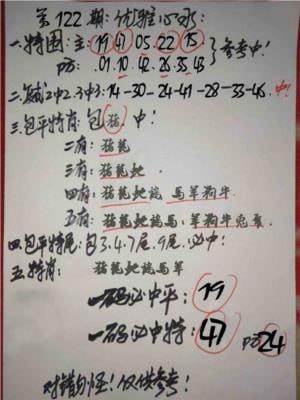 第122期:优雅心水:
一.特围:主:19.47.05.22.15. 参考中!
防:01.10.42.26.35.43
二.复式2中2.3中3:14-30-24-41-28-33-46. 中!
三.包平特肖:包猪中!
二肖:猪龍
三肖:猪龍蛇.
四肖:猪龍蛇 馬羊狗牛
五肖:猪龍蛇 馬.羊狗牛兔
四.包平特尾:包3.4.7尾.9尾.必中:
五.特肖:猪龍蛇 馬羊
一码必中平:19
一码必中特:47 防24
对错勿怪!仅供参考!